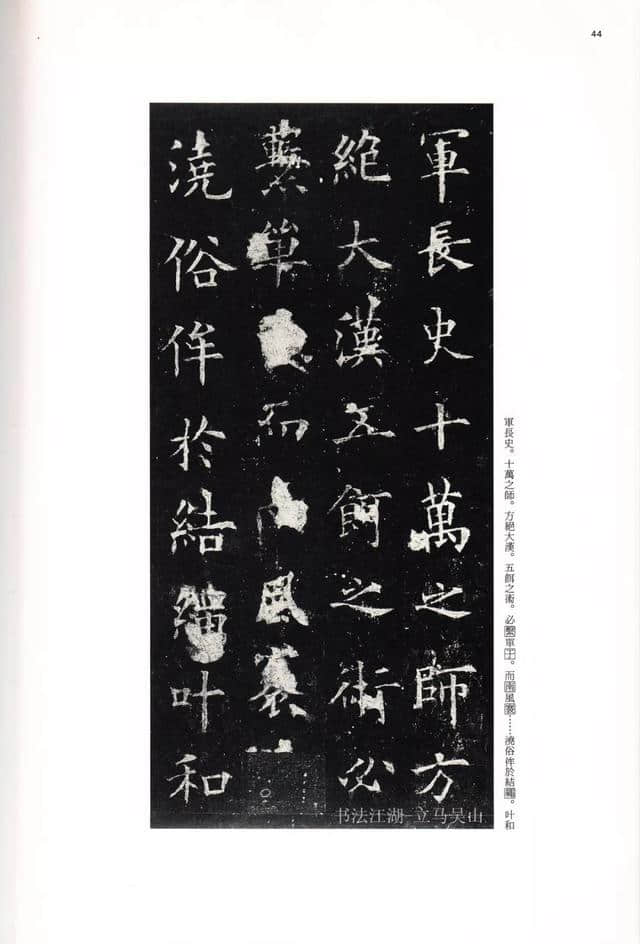 44
軍長史十萬之師方
絶大漢五餌之術必
蘩單而風寋
澆俗侔於結繩叶和
軍長史。十萬之師。方絕大漢。五餌之術。必繫單于。而南風寋……澆俗侔於結繩。叶和
书法江湖 立马吴山